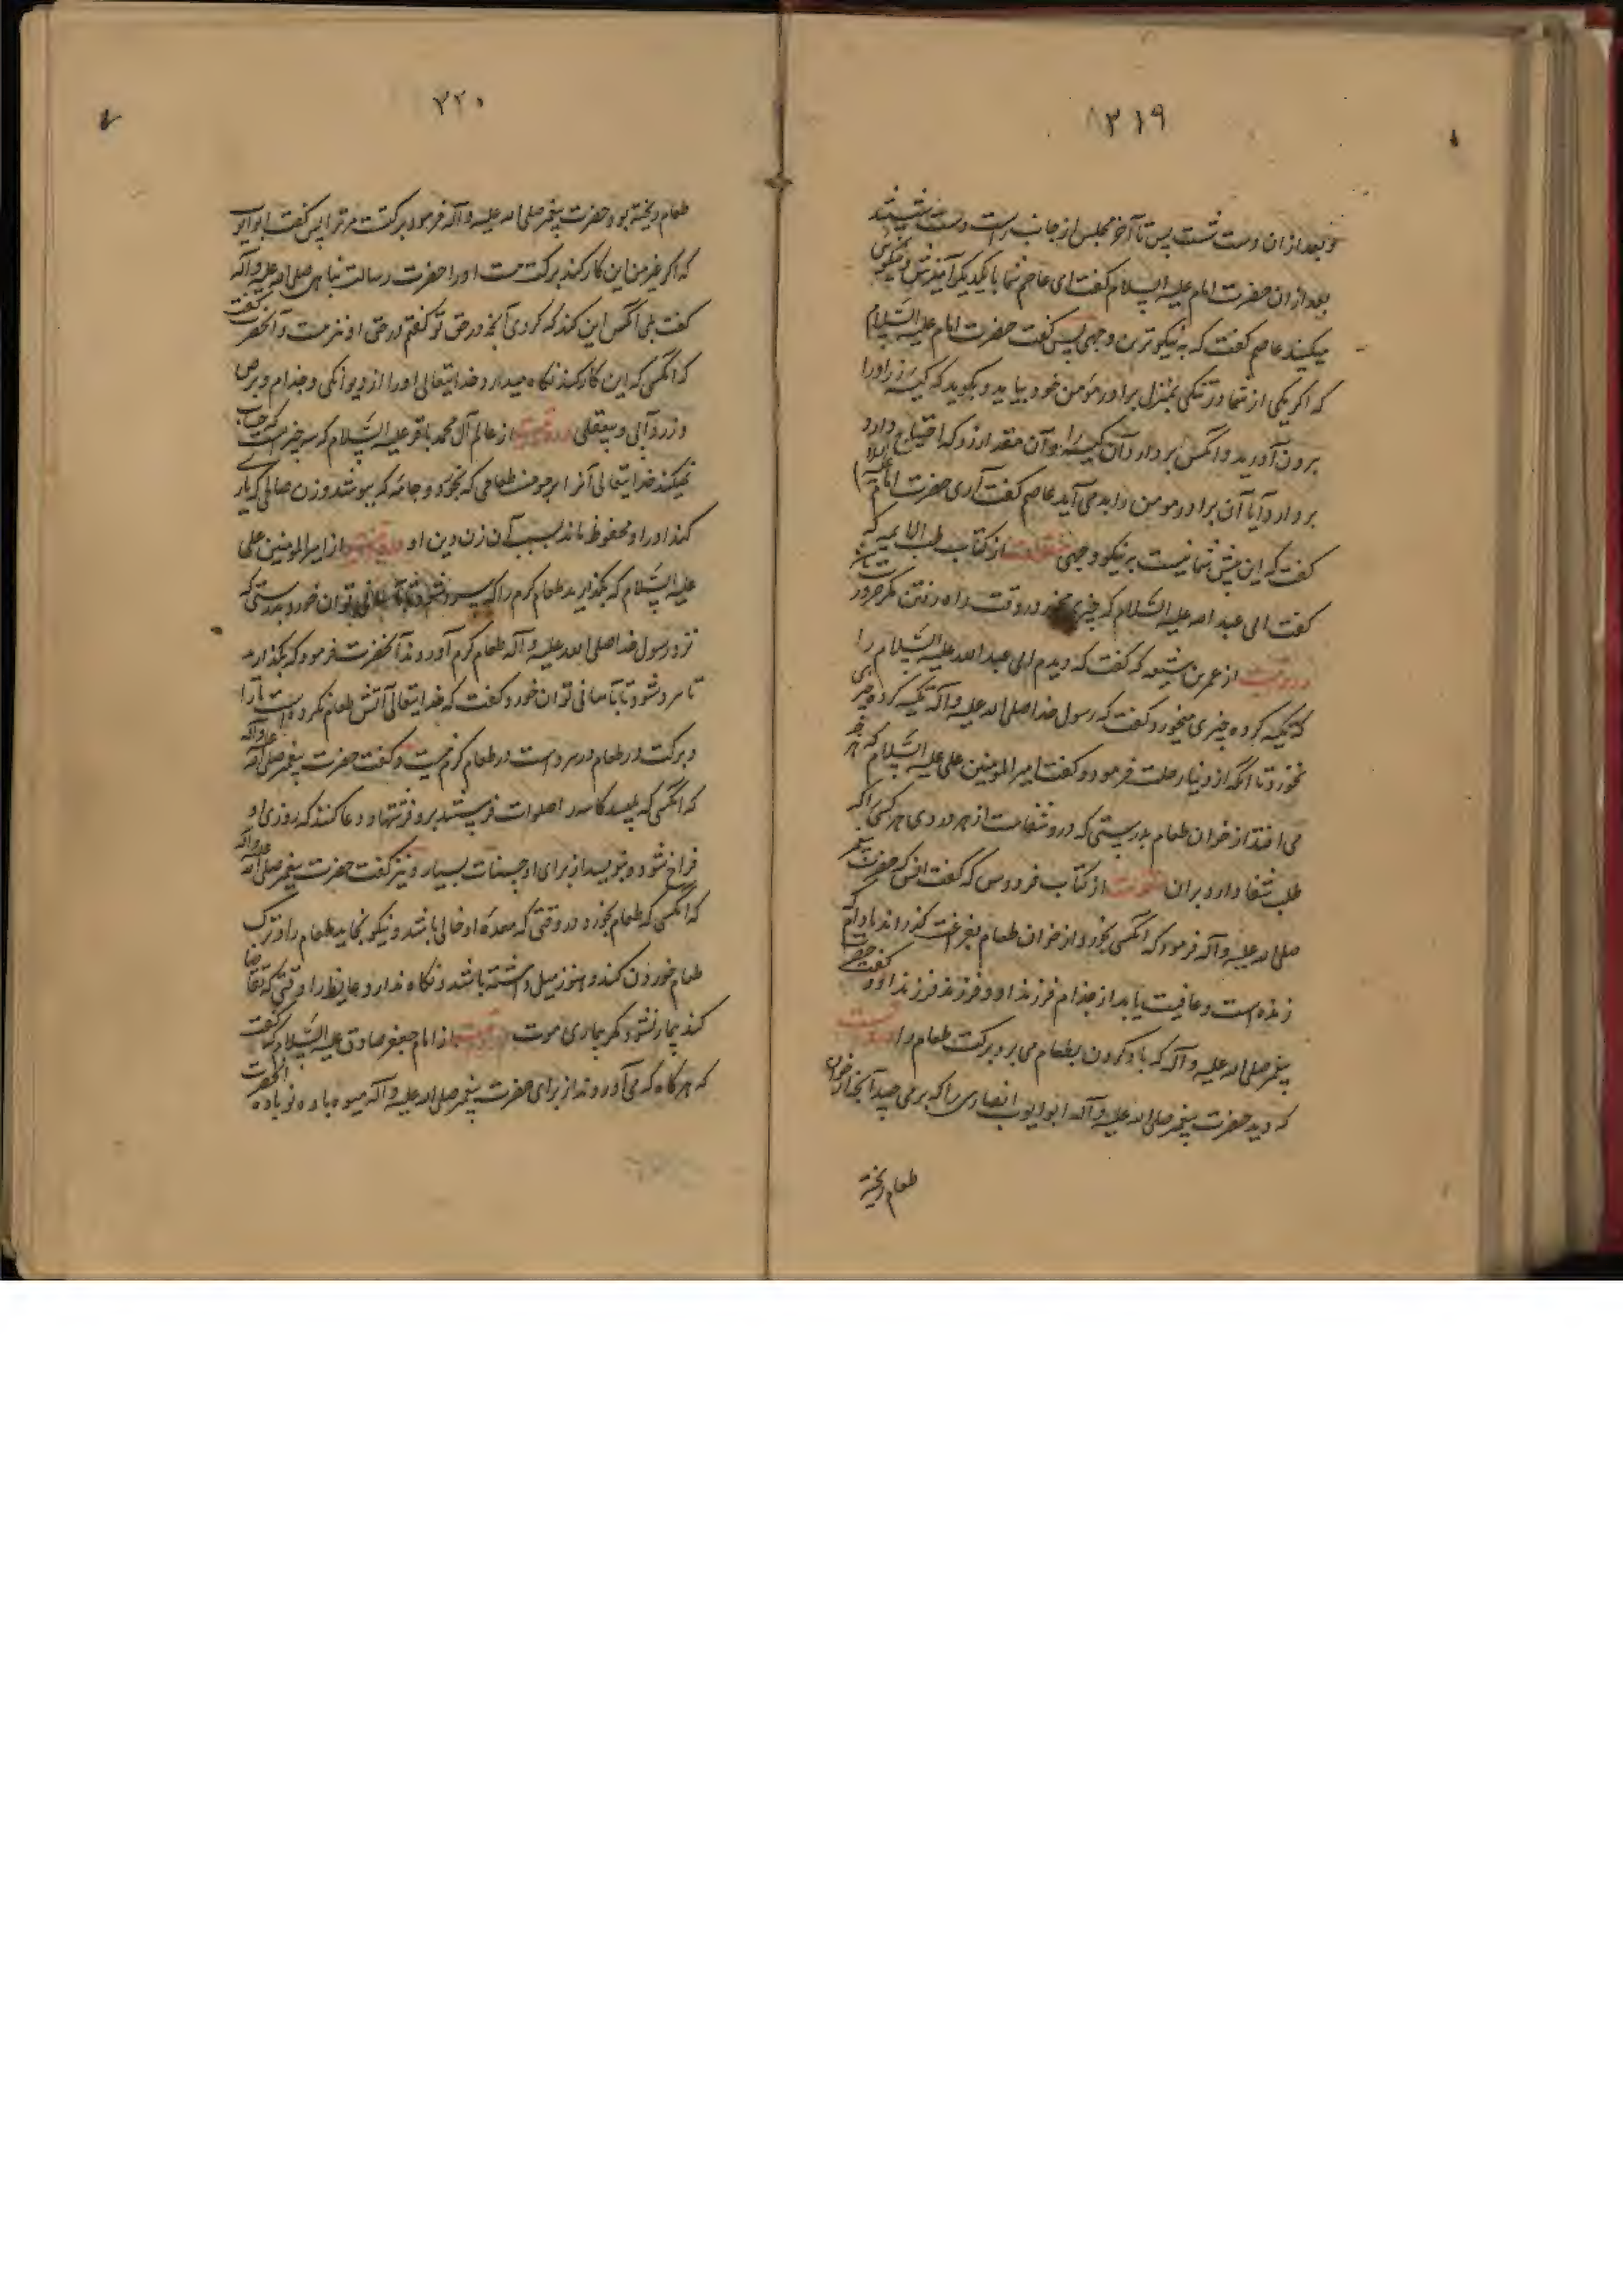 ۳۱۹
و بعد از ان دست شست پس تا آخر مجلس از جانب راست دست شستند
بعد از ان حضرت امام علیه السلام گفت ای عاصم شما با یکدیگر آمیزش و نیکوئی
میکنید عاصم گفت که به نیکوترین وجهی پس گفت حضرت امام علیه السلام
که اگر یکی از شما در تنگی بمنزل برادر مؤمن خود بیاید و بگوید که کیسه زر او را
برون آورید و آنکس بردارد آن کیسه را و آن مقدار زر که احتیاج دارد
بردارد آیا آن برادر مومن را بد می آید عاصم گفت آری حضرت امام علیه السلام
گفت که این پیش شما نیست بر نیکو وجهی منقولست از کتاب طب الائمه که
گفت ابی عبد الله علیه السلام که چیزی مخور در وقت راه رفتن مگر ضرور
در روایت از عمر بن شیعه که گفت که دیدم ابی عبد الله علیه السلام را
که تکیه کرده چیزی میخورد گفت که رسول خدا صلی الله علیه و آله تکیه کرده چیزی
نخورد تا آنکه از دنیا رحلت فرمود و گفت امیر المومنین علی علیه السلام که هر چه
می افتد از خوان طعام بدرستی که درو شفاست از هر دردی هر کسی را که
طلب شفا دارد بران منقولست از کتاب فردوس که گفت انس که حضرت پیغمبر
صلی الله علیه و آله فرمود که آنکس بخورد از خوان طعام بفراغت گذراند مادام که
زنده است و عافیت یابد از جذام فرزند او و فرزند فرزند او و گفت حضرت
پیغمبر صلی الله علیه و آله که باد کردن بطعام می برد برکت طعام را
که دید حضرت پیغمبر صلی الله علیه و آله ابو ایوب انصاری را که بر می چید آنچه از خوان
طعام ریخته
۳۲۰
طعام ریخته بود حضرت پیغمبر صلی الله علیه و آله فرمود برکتست مر ترا پس گفت ابو ایوب
که اگر غیر من این کار کند برکت هست او را حضرت رسالت پناهی صلی الله علیه و آله
گفت بلی آنکس این کند که کردی آنچه در حق تو گفتم در حق او نیز هست و آنحضرت گفت
که آنکس که این کار کند نگاه میدارد خدایتعالی او را از دیوانگی و جذام و برص
و زردآبی و بیعقلی در روایت از عالم آل محمد باقر علیه السلام که سه چیز است که حساب
نمیکند خدایتعالی آنرا بر مومن طعامی که بخورد و جامه که بپوشد و زن صالحی که یاری
کند او را و محفوظ ماند بسبب آن زن دین او در روایت از امیر المومنین علی
علیه السلام که بگذارید طعام گرم را که سرد شود تا بآسانی توان خورد بدرستی که
نزد رسول خدا صلی الله علیه و آله طعام گرم آوردند آنحضرت فرمود که بگذارید
تا سرد شود تا بآسانی توان خورد و گفت که خدایتعالی آتش طعام نکرده است ما را
و برکت در طعام سرد است در طعام گرم نیست و گفت حضرت پیغمبر صلی الله علیه و آله
که آنکسی که بلیسد کاسه را صلوات فرستند برو فرشتها و دعا کنند که روزی او
فراخ شود و بنویسد از برای او حسنات بسیار و نیز گفت حضرت پیغمبر صلی الله علیه و آله
که آنکسی که طعام بخورد در وقتی که معده او خالی باشد و نیکو بخاید طعام را و ترک
طعام خوردن کند و هنوز میل داشته باشد و نگاه ندارد غایط را وقتی که تقاضا
کند بیمار نشود مگر بیماری موت از امام جعفر صادق علیه السلام که گفت
که هرگاه که می آوردند از برای حضرت پیغمبر صلی الله علیه و آله میوه باده نوباوه آنحضرت